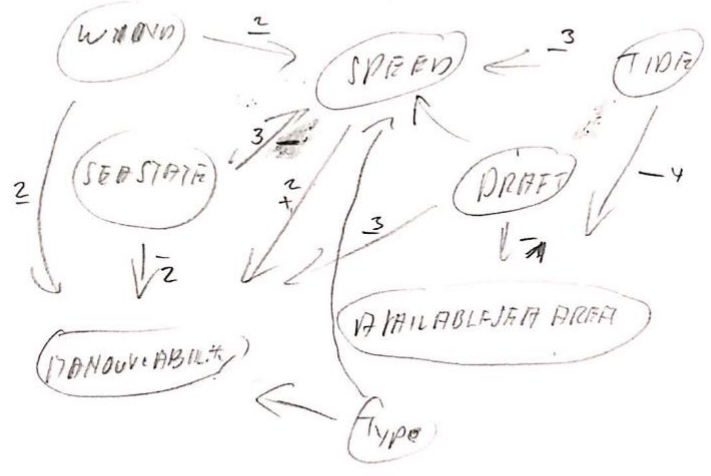 WIIND
2
SPEED
3
TIDE
SEASTATE
3
2
2
+
DRAFT
-4
3
-2
AVAILABLESEA AREA
MANOUVEABILI
TYPE